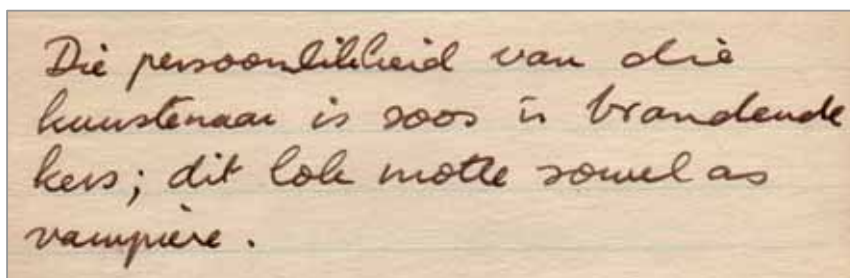 Die persoonlikheid van die
kunstenaar is soos 'n brandende
kers; dit lok motte sowel as
vampière.